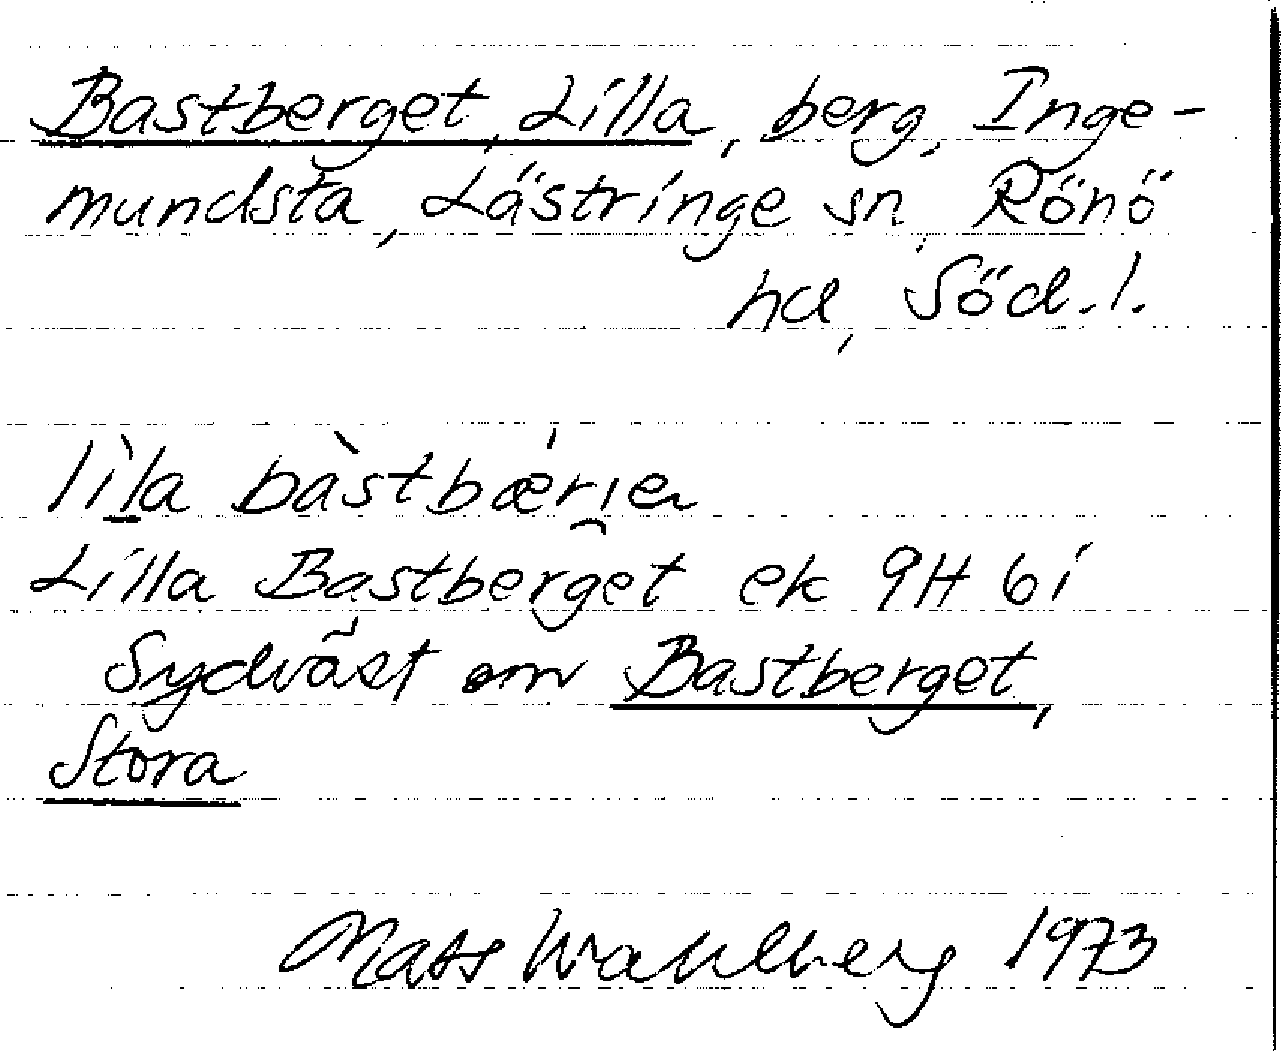 Bastberget, Lilla, berg, Inge-
mundsta, Lästringe sn, Rönö
hd, Söd.l.
lìl̲a bàstbæ'ri̯en
Lilla Bastberget ek 9H 6i
Sydväst om Bastberget,
Stora
Mats Wahlberg 1973